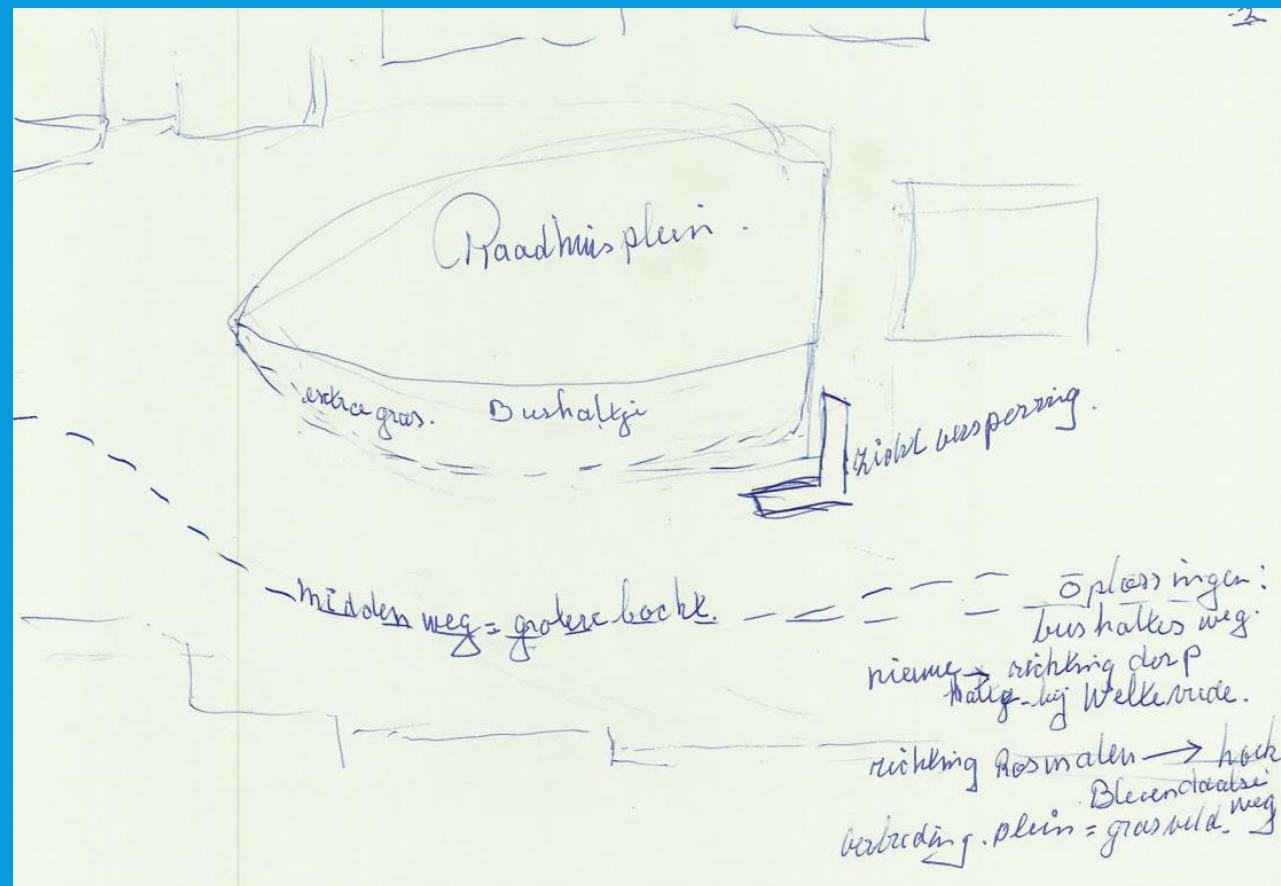 -2-
Raadhuisplein.
extra gras. Bushaltje
zicht versperring.
midden weg = grotere bocht.
Oplossingen:
bushaltes weg.
nieuwe → richting dorp
halte bij Welkevude.
richting Rosmalen → hoek
weg
verbreding. plein = grasveld.